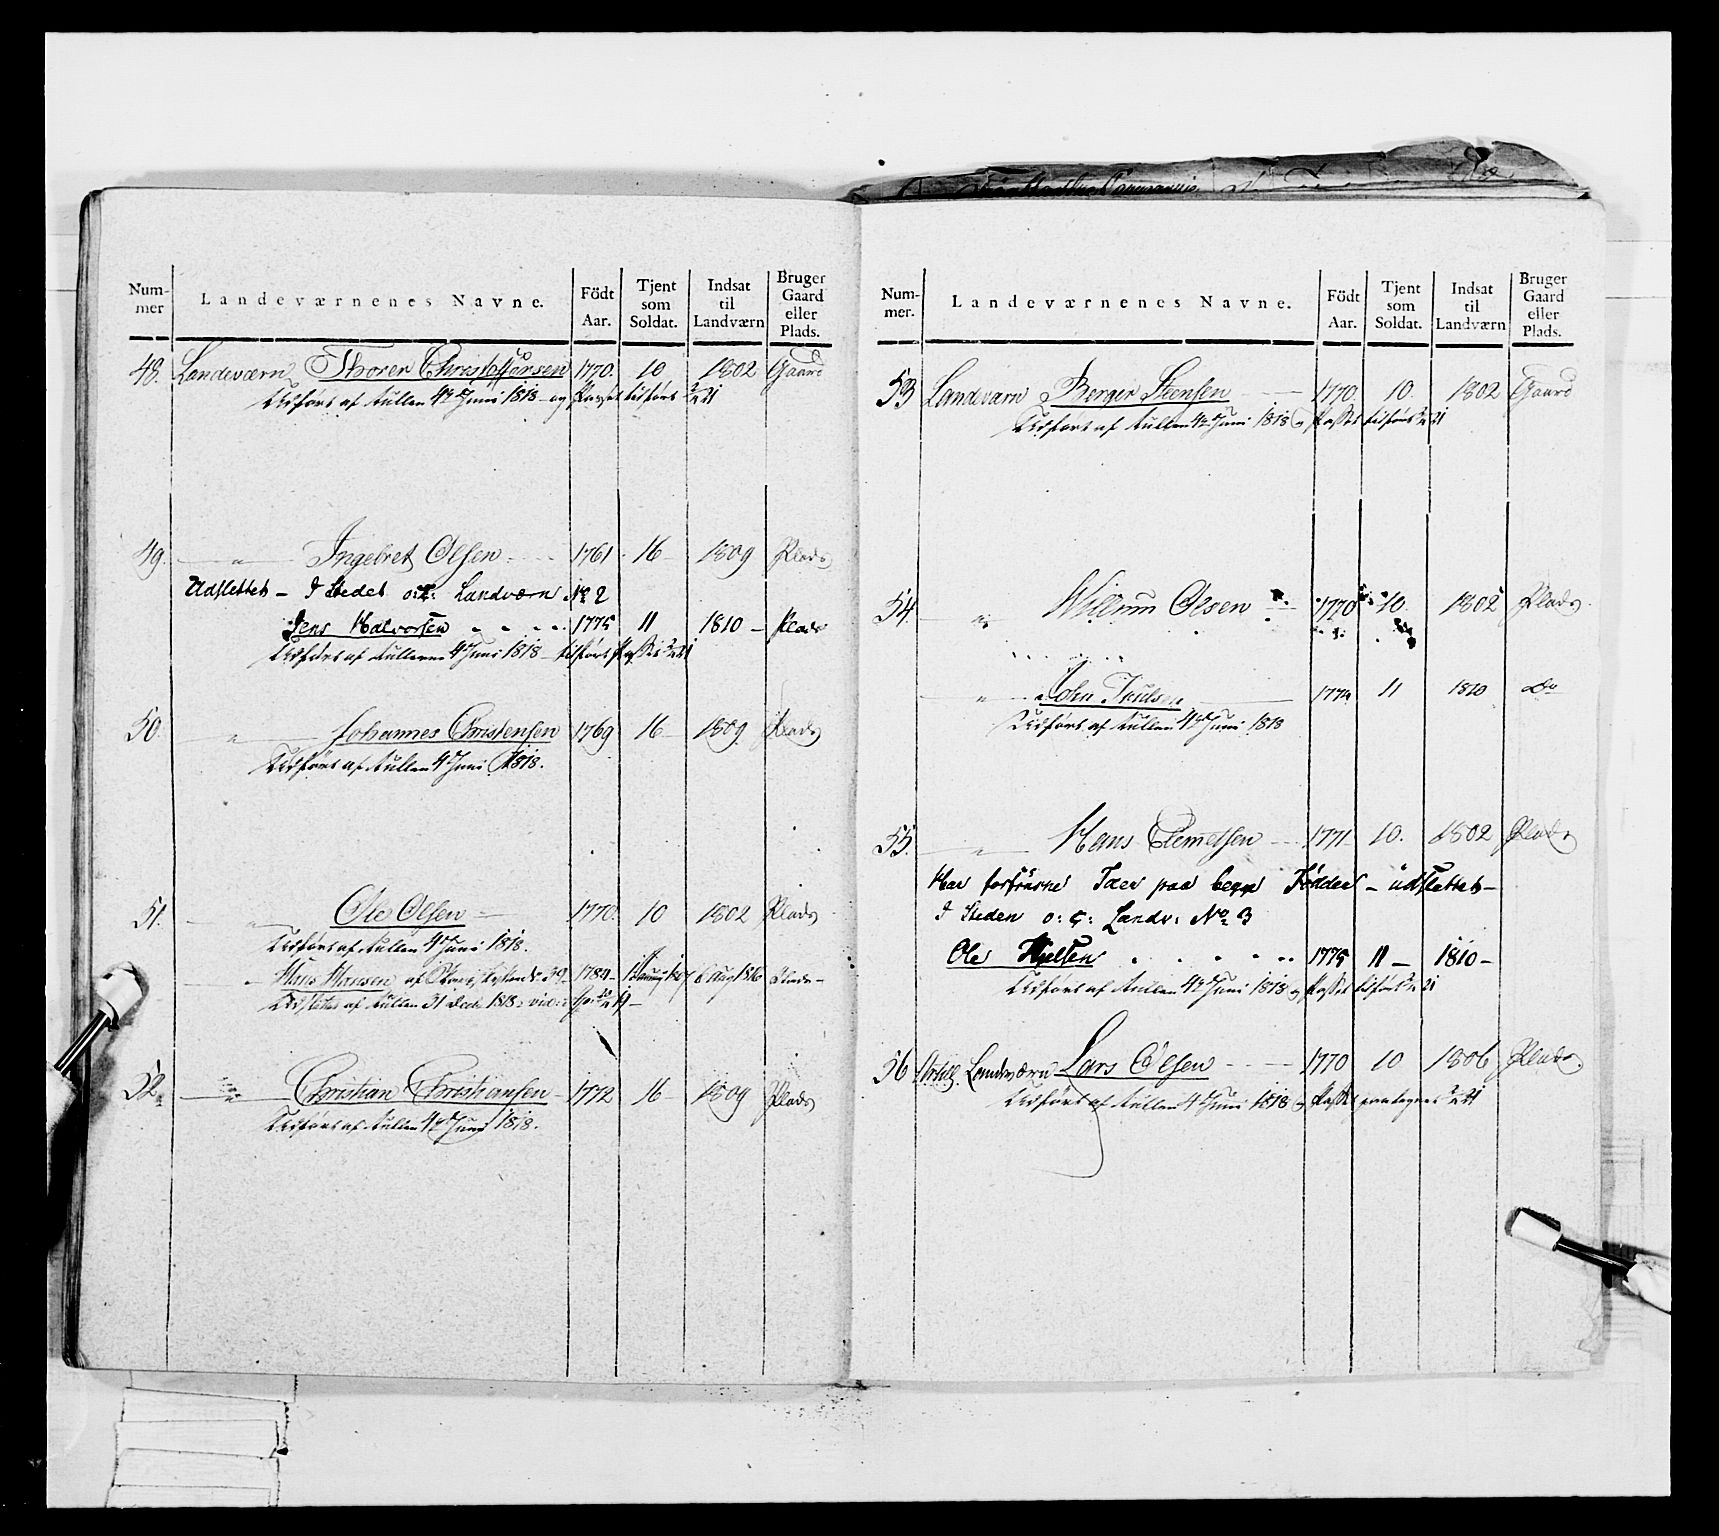 Nummer
Landeværnenes Navne.
Födt Aar.
Tjent som Soldat.
Indsat til Landværn
Bruger Gaard eller Plads.
48. Landeværn Thorer Christophersen 1770. 10 1802 Gaard
Udført af Rullen 4de Juni 1818 og Passet tilført
49. " Ingebret Olsen 1761 16 1809 Plads
Udslettet – I Stedet Landværn No 2
Jens Halvorsen " " " 1775 11 1810 – Plads
Udført af Rullerne 4de Juni 1818 – tilført Passet
50. " Johannes Christensen 1769 16 1809. Plads
Udført af Rullen 4de Juni 1818.
51. " Ole Olsen 1770. 10 1802 Plads
Udført af Rullen 4de Juni 1818.
" Hans Hansen af 39 1784 6 Aug 1816 Plads
af Rullen 31 Decbr 1818
52. " Christian Christiansen 1772 16 1809 Plads
Udført af Rullen 4de Juni 1818.
Nummer.
Landeværnenes Navne.
Födt Aar.
Tjent som Soldat.
Indsat til Landværn
Bruger Gaard eller Plads.
53 Landværn Berger Steensen 1770. 10. 1802 Gaard
Udført af Rullen 4de Juni 1818 og Passet tilført
54. " Willum Olsen 1770 10. 1802 Plads
" John Paulsen 11 1810 Do
Udført af Rullen 4de Juni 1818
55. " Hans Clemetsen 1771 10. 1802 Plads
Har forfrosne Tæer paa begge Födder – udslettet –
I Steden Landv: No 3
Ole 1775 11 – 1810 –
Udført af Rullen 4de Juni 1818 og Passet tilført
56 Artill. Landværn Lars Olsen 1770 10 1806 Plads.
Udført af Rullen 4de Juni 1818 og Passet